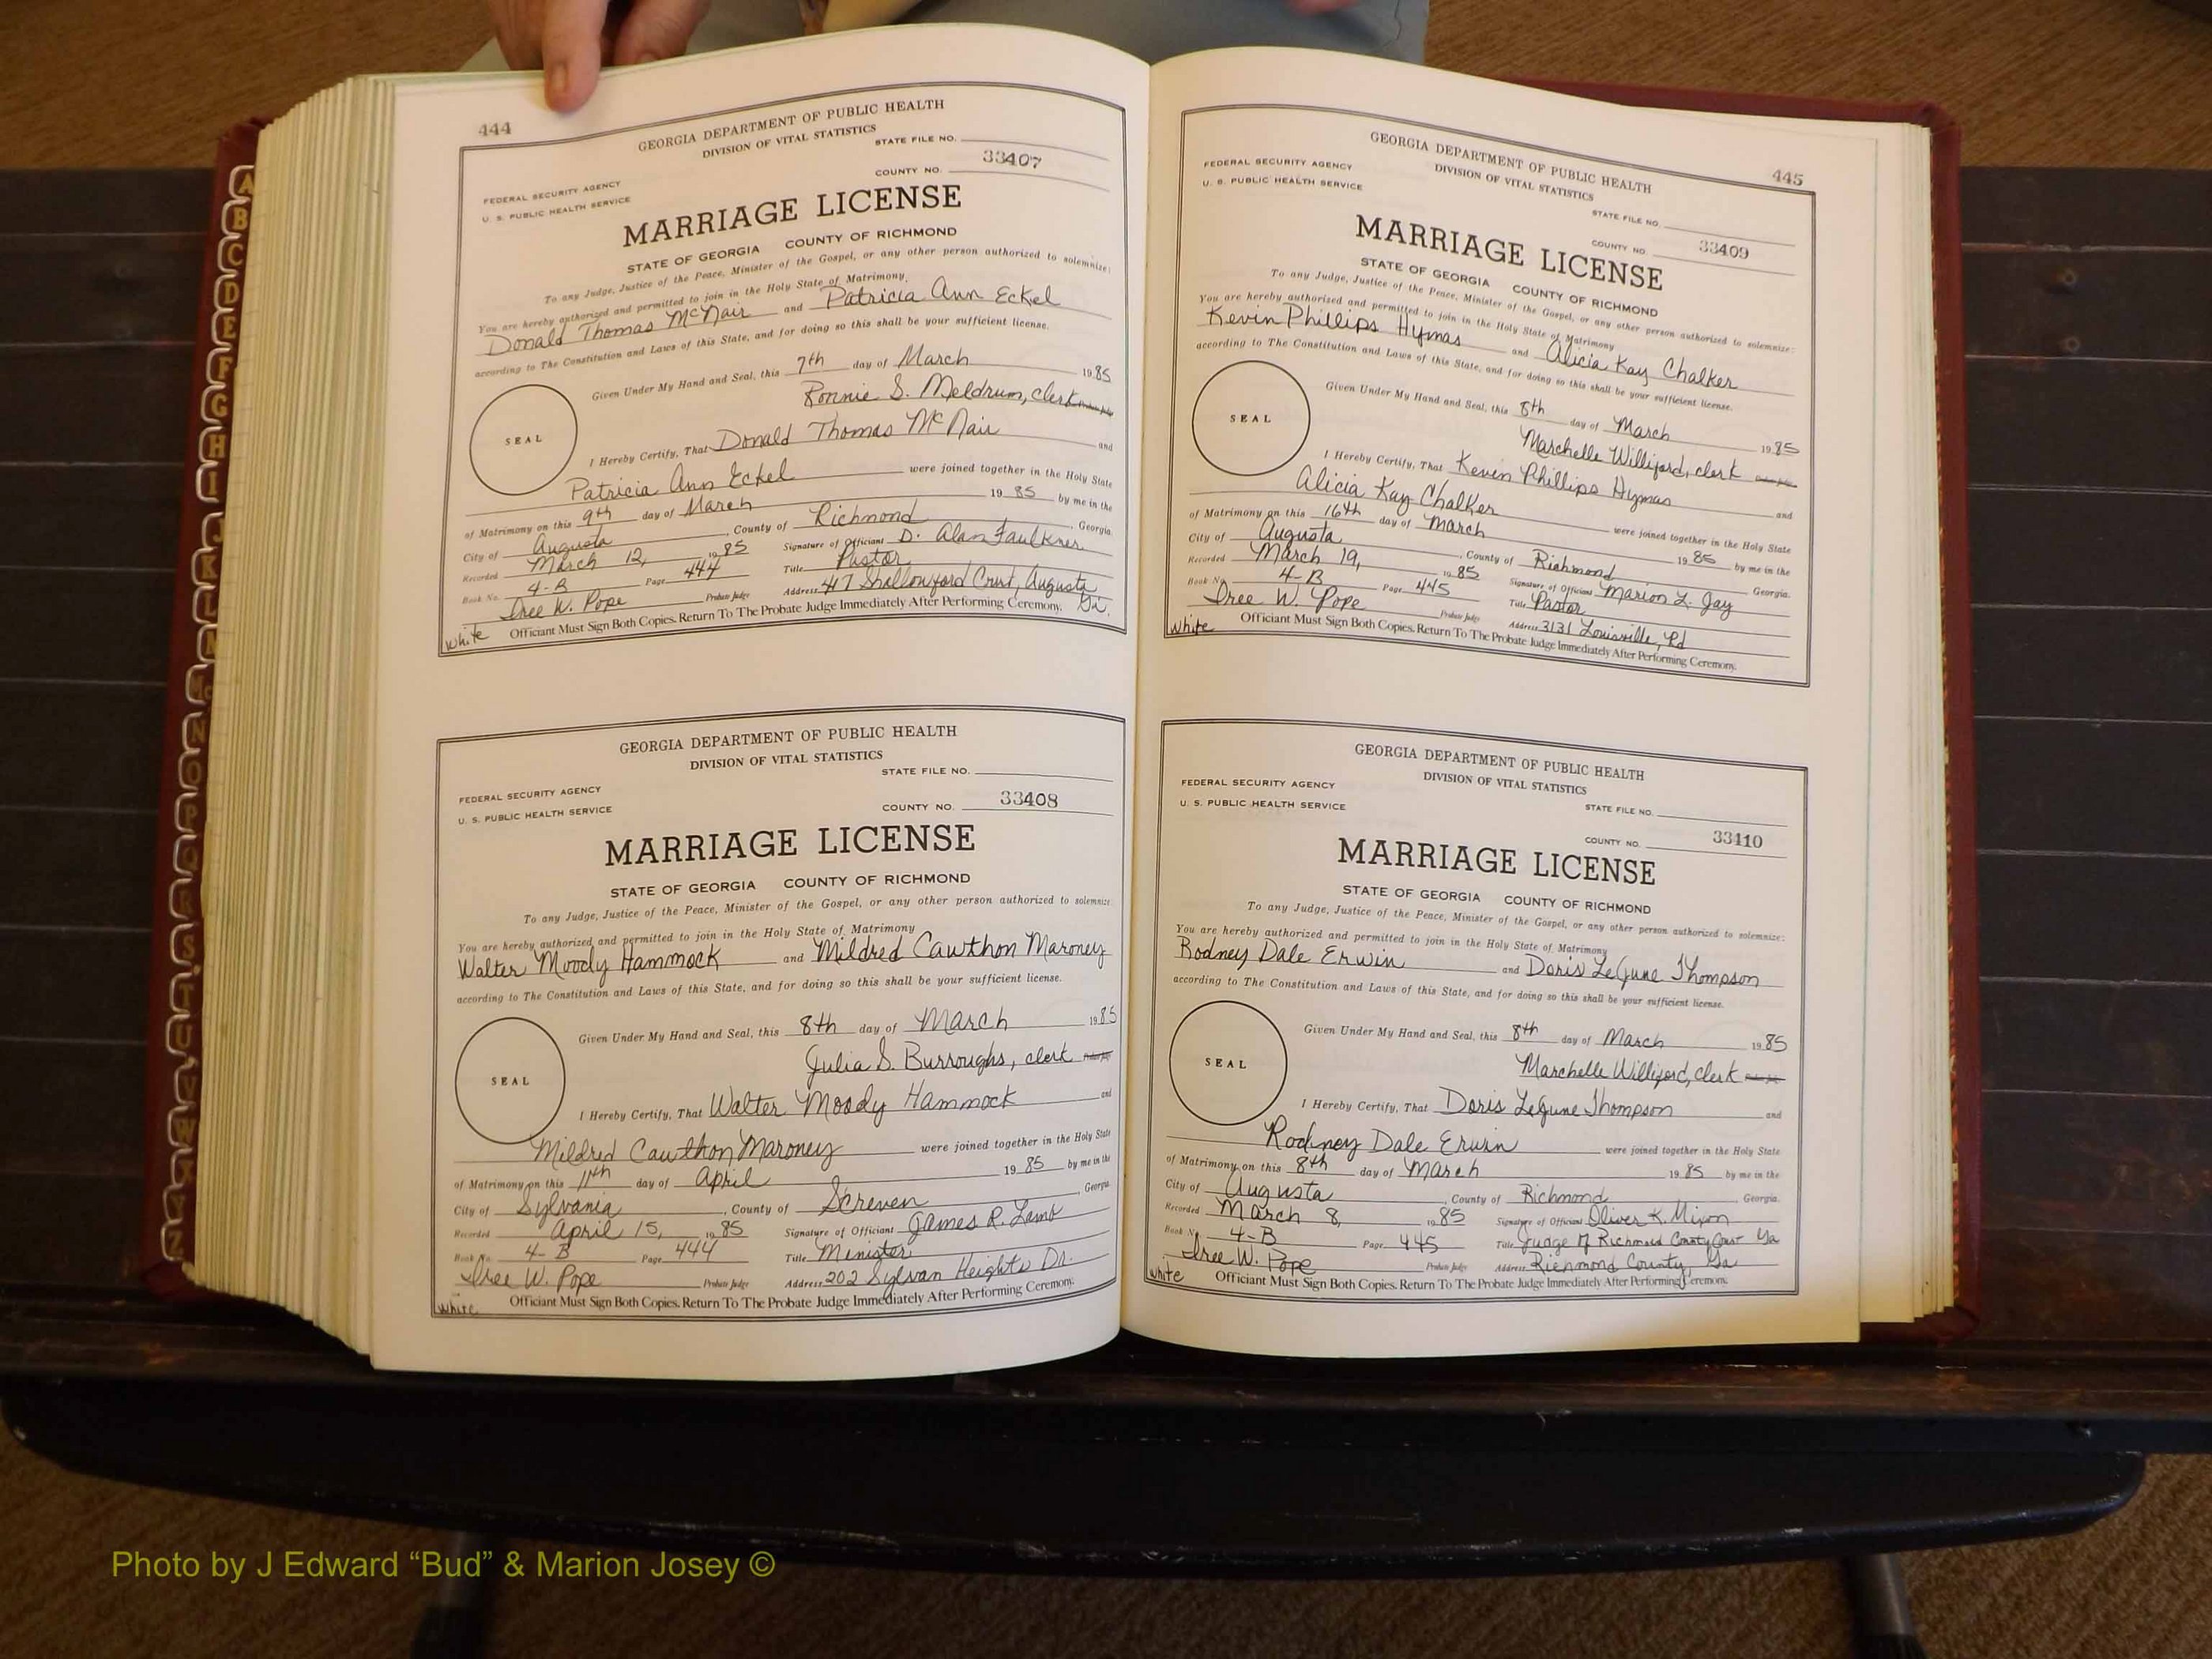 444
GEORGIA DEPARTMENT OF PUBLIC HEALTH
DIVISION OF VITAL STATISTICS
STATE FILE NO.
FEDERAL SECURITY AGENCY
U. S. PUBLIC HEALTH SERVICE
COUNTY NO. 33407
MARRIAGE LICENSE
STATE OF GEORGIA COUNTY OF RICHMOND
To any Judge, Justice of the Peace, Minister of the Gospel, or any other person authorized to solemnize:
You are hereby authorized and permitted to join in the Holy State of Matrimony
Donald Thomas McNair and Patricia Ann Eckel
according to The Constitution and Laws of this State, and for doing so this shall be your sufficient license.
Given Under My Hand and Seal, this 7th day of March 1985
Bonnie S. Meldrum, clerk Probate Judge
SEAL
I Hereby Certify, That Donald Thomas McNair and
Patricia Ann Eckel were joined together in the Holy State
of Matrimony on this 9th day of March 19 85 by me in the
City of Augusta, County of Richmond, Georgia.
Recorded March 12, 1985 Signature of Officiant D. Alan Faulkner
Book No. 4-B Page 444 Title Pastor
Iree W. Pope Probate Judge Address 417 Shallowford Court, Augusta Ga.
White Officiant Must Sign Both Copies. Return To The Probate Judge Immediately After Performing Ceremony.
GEORGIA DEPARTMENT OF PUBLIC HEALTH
DIVISION OF VITAL STATISTICS
STATE FILE NO.
FEDERAL SECURITY AGENCY
U. S. PUBLIC HEALTH SERVICE
COUNTY NO. 33408
MARRIAGE LICENSE
STATE OF GEORGIA COUNTY OF RICHMOND
To any Judge, Justice of the Peace, Minister of the Gospel, or any other person authorized to solemnize:
You are hereby authorized and permitted to join in the Holy State of Matrimony
Walter Moody Hammock and Mildred Cawthon Maroney
according to The Constitution and Laws of this State, and for doing so this shall be your sufficient license.
Given Under My Hand and Seal, this 8th day of March 1985
Julia S. Burroughs, clerk Probate Judge
SEAL
I Hereby Certify, That Walter Moody Hammock and
Mildred Cawthon Maroney were joined together in the Holy State
of Matrimony on this 11th day of April 19 85 by me in the
City of Sylvania, County of Screven, Georgia.
Recorded April 15, 1985 Signature of Officiant James R. Lamb
Book No. 4-B Page 444 Title Minister
Iree W. Pope Probate Judge Address 202 Sylvan Heights Dr.
White Officiant Must Sign Both Copies. Return To The Probate Judge Immediately After Performing Ceremony.
445
GEORGIA DEPARTMENT OF PUBLIC HEALTH
DIVISION OF VITAL STATISTICS
FEDERAL SECURITY AGENCY
U. S. PUBLIC HEALTH SERVICE
STATE FILE NO.
COUNTY NO. 33409
MARRIAGE LICENSE
STATE OF GEORGIA COUNTY OF RICHMOND
To any Judge, Justice of the Peace, Minister of the Gospel, or any other person authorized to solemnize:
You are hereby authorized and permitted to join in the Holy State of Matrimony
Kevin Phillips Hymas and Alicia Kay Chalker
according to The Constitution and Laws of this State, and for doing so this shall be your sufficient license.
Given Under My Hand and Seal, this 8th day of March 1985
Marchelle Williford, clerk Probate Judge
SEAL
I Hereby Certify, That Kevin Phillips Hymas and
Alicia Kay Chalker were joined together in the Holy State
of Matrimony on this 16th day of March 19 85 by me in the
City of Augusta, County of Richmond Georgia.
Recorded March 19, 1985 Signature of Officiant Marion L. Jay
Book No. 4-B Page 445 Title Pastor
Iree W. Pope Probate Judge Address 3131 Louisville, Rd
White Officiant Must Sign Both Copies. Return To The Probate Judge Immediately After Performing Ceremony.
GEORGIA DEPARTMENT OF PUBLIC HEALTH
DIVISION OF VITAL STATISTICS
FEDERAL SECURITY AGENCY
U. S. PUBLIC HEALTH SERVICE
STATE FILE NO.
COUNTY NO. 33410
MARRIAGE LICENSE
STATE OF GEORGIA COUNTY OF RICHMOND
To any Judge, Justice of the Peace, Minister of the Gospel, or any other person authorized to solemnize:
You are hereby authorized and permitted to join in the Holy State of Matrimony
Rodney Dale Erwin and Doris LeJune Thompson
according to The Constitution and Laws of this State, and for doing so this shall be your sufficient license.
Given Under My Hand and Seal, this 8th day of March 1985
Marchelle Williford, clerk Probate Judge
SEAL
I Hereby Certify, That Doris LeJune Thompson and
Rodney Dale Erwin were joined together in the Holy State
of Matrimony on this 8th day of March 19 85 by me in the
City of Augusta, County of Richmond Georgia.
Recorded March 8, 1985 Signature of Officiant Oliver K. Mixon
Book No. 4-B Page 445 Title Judge of Richmond County Court Ga
Iree W. Pope Probate Judge Address Richmond County, Ga
White Officiant Must Sign Both Copies. Return To The Probate Judge Immediately After Performing Ceremony.
A
B
C
D
E
F
G
H
I
J
K
L
M
Mc
N
O
P
Q
R
S
T
U
V
W
X
Y
Z
Photo by J Edward “Bud” & Marion Josey ©